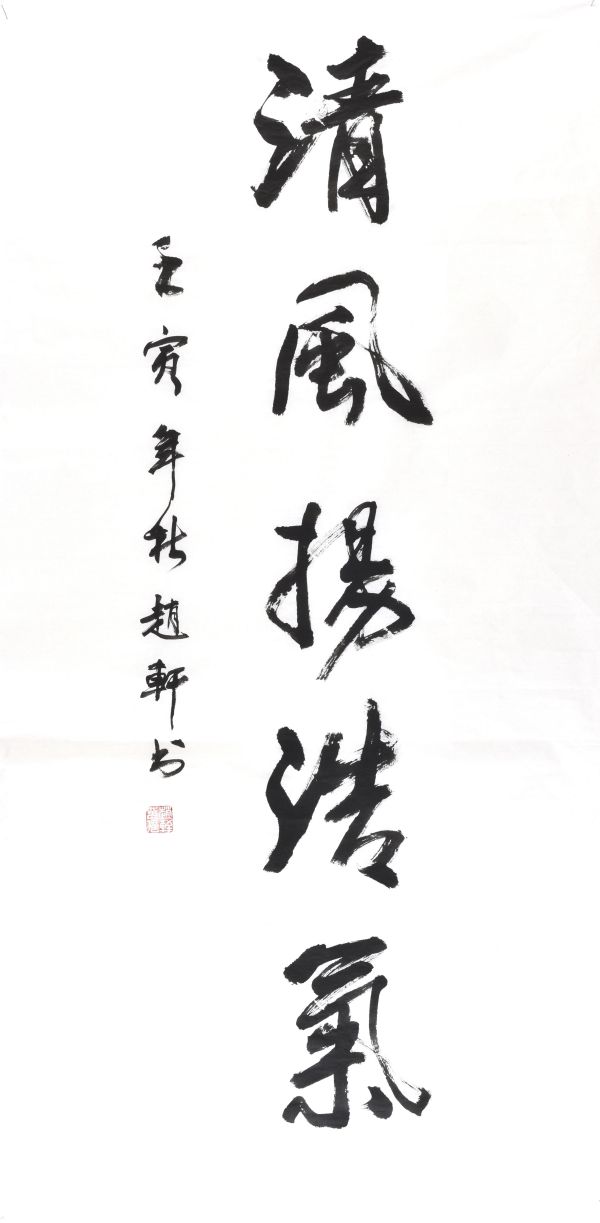 清風揚浩氣
壬寅年秋趙軒書